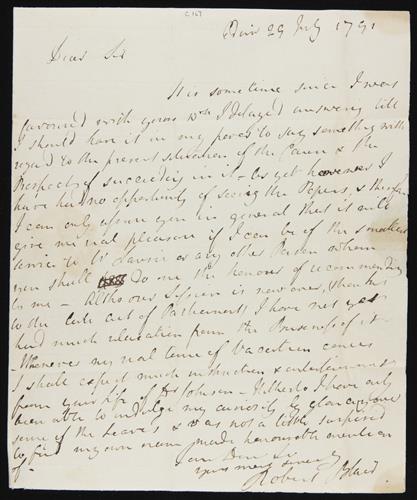 Edin 29 July 1791
Dear Sir
It is some time since I was
favoured with yours wch I delayed answering till
I should have it in my power to say something with
regard to the present situation of the Cause & the
Prospects of succeeding in it – As yet however I
have had no opportunity of seeing the Papers, & therefore
I can only assure you in general that it will
give me real pleasure if I can be of the smallest
service to Mr or any other Person whom
you shall do me the honour of recommending
to me – Altho our Session is now over, thanks
to the late act of Parliament I have not yet
had much relaxation from the Business of it
– Whenever my real time of Vacation comes
I shall expect much instruction & entertainment
from your Life of Dr Johnson – Hitherto I have only
been able to indulge my curiosity by glancing over
some of the Leaves & was not a little surprised
to find my own name made honourable mention
of –
I am Dear Sir
yours most sincerely
Robert Blair